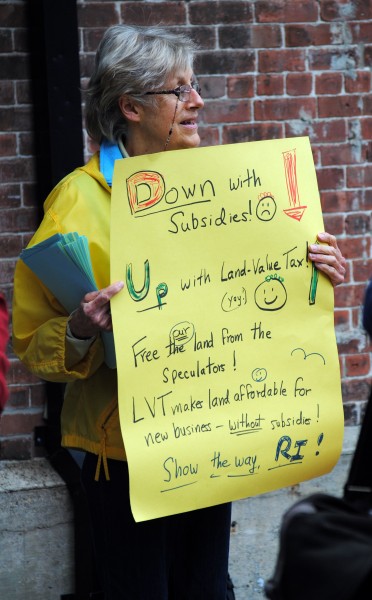 Down with
Subsidies!
Up with Land-Value Tax!
(yay!)
our
Free the land from the
speculators!
LVT makes land affordable for
new business - without subsidies!
Show the way, RI!